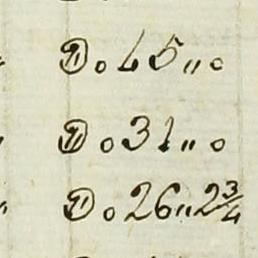 Do 45 „ 0
Do 31 „ 0
Do 26 „ 2 3/4